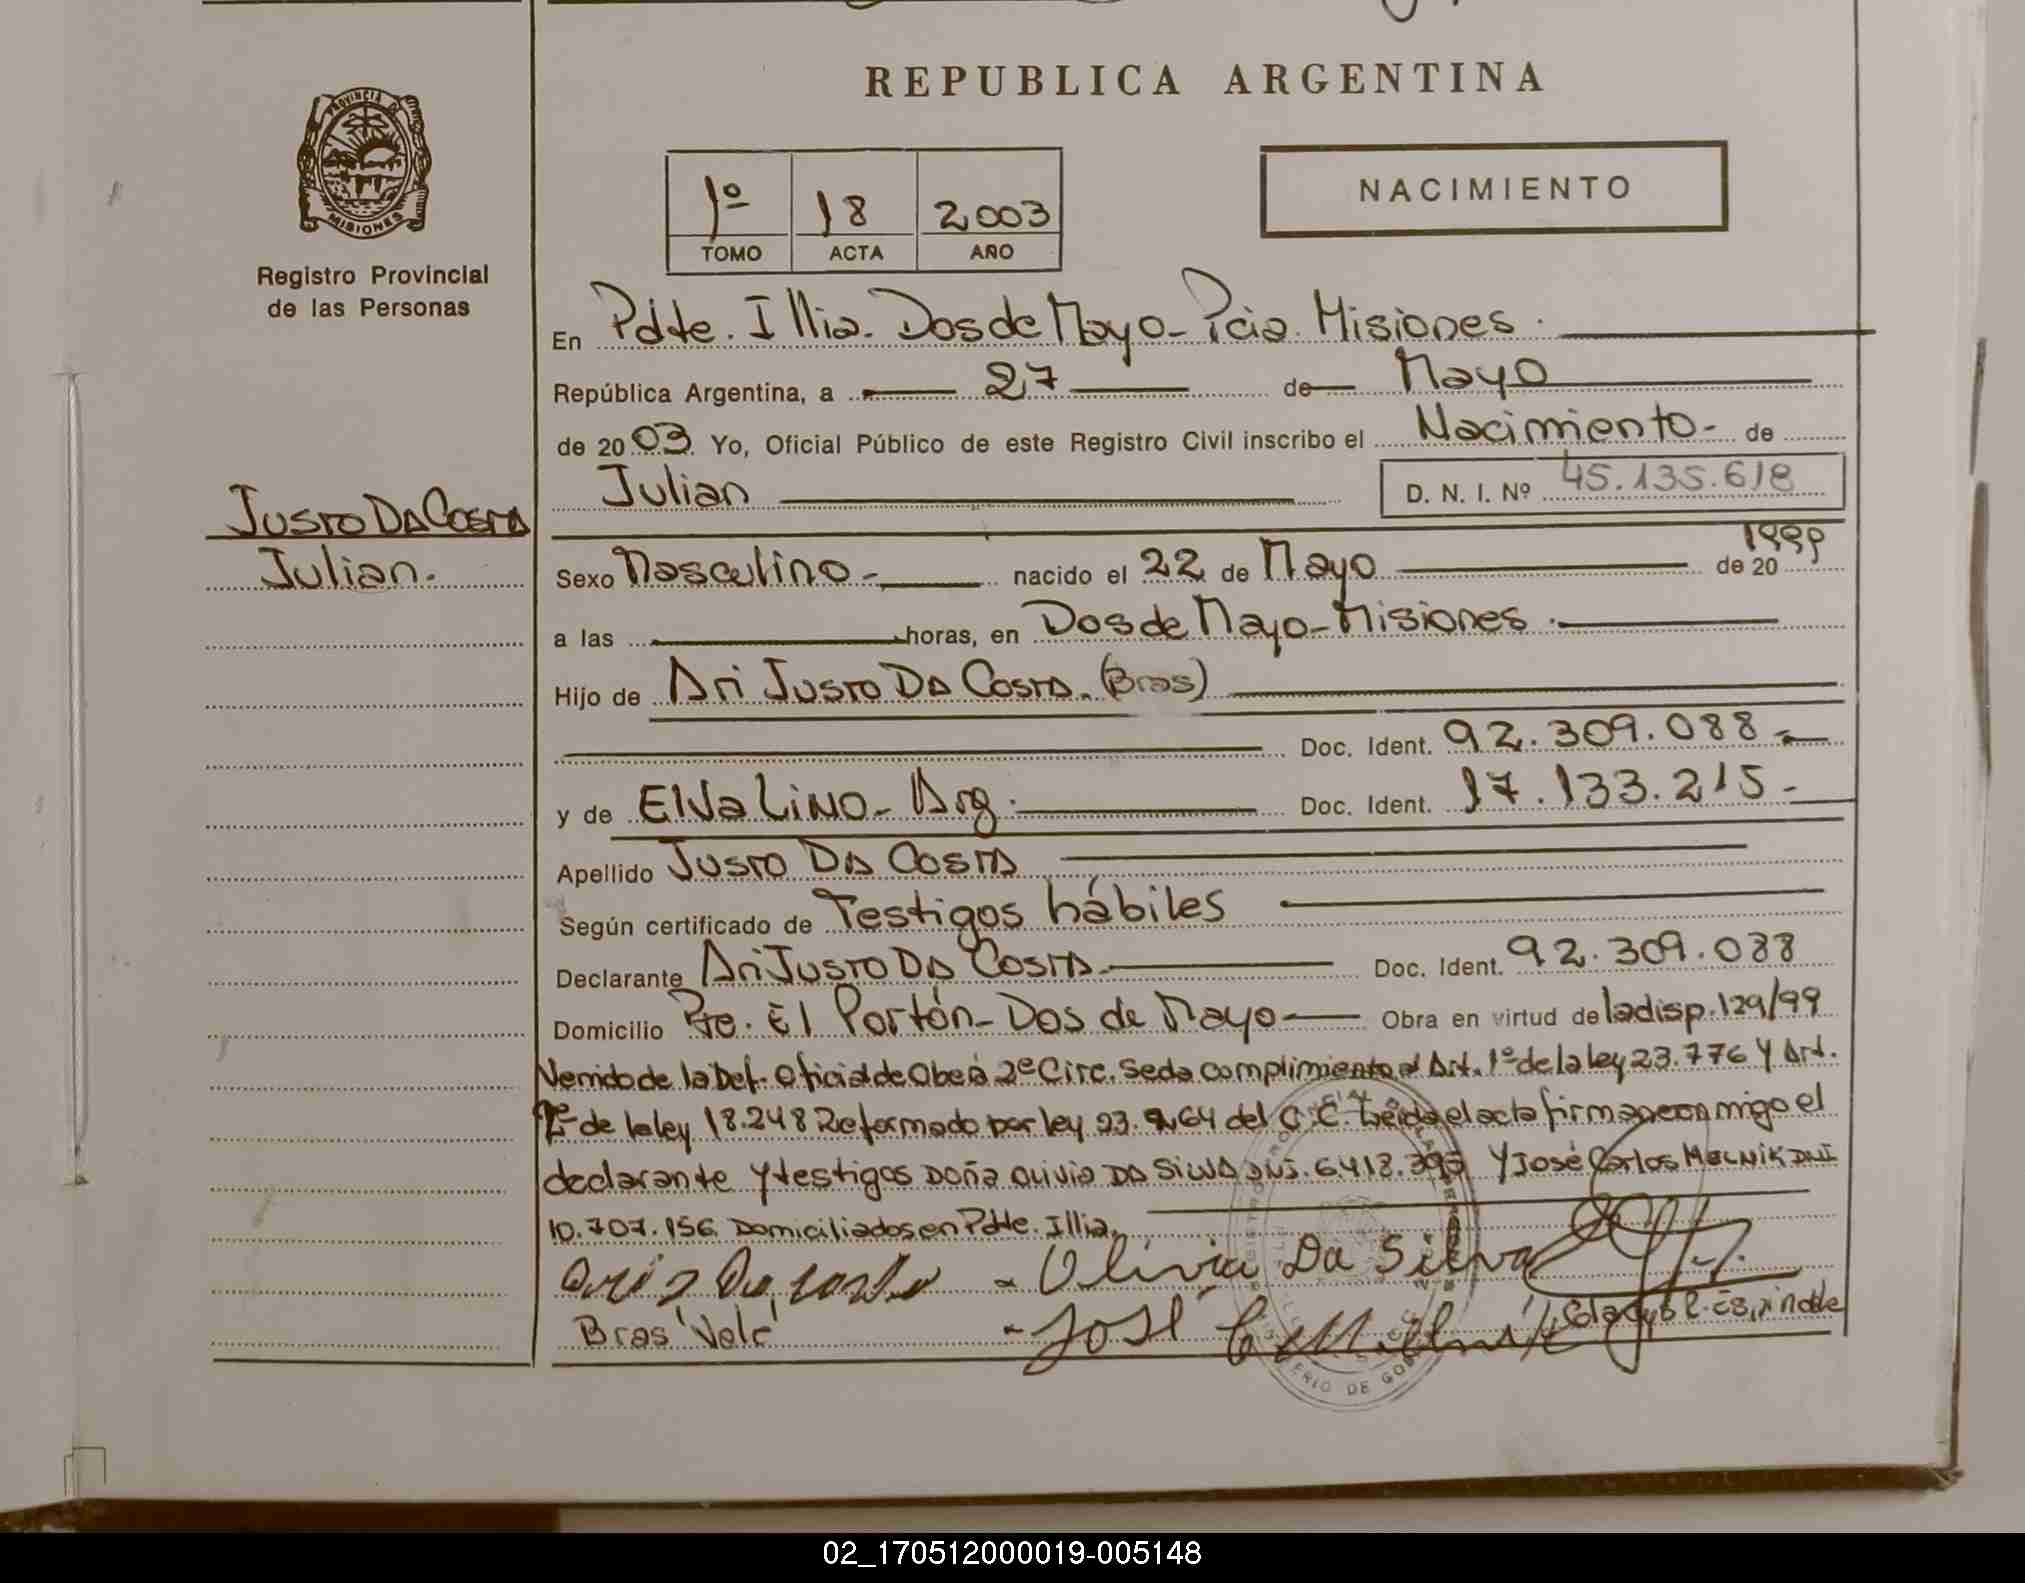 REPUBLICA ARGENTINA
PROVINCIA DE
MISIONES
Registro Provincial
de las Personas
1º 18 2003
TOMO ACTA AÑO
NACIMIENTO
En Pdte. Illia. Dos de Mayo - Pcia. Misiones.
República Argentina, a 27 de Mayo
de 2003 Yo, Oficial Público de este Registro Civil inscribo el Nacimiento - de
Julian D. N. I. Nº 45.135.618
Justo Da Costa
Julian.
Sexo Masculino - nacido el 22 de Mayo de 20 1999
a las horas, en Dos de Mayo - Misiones.
Hijo de Ari Justo Da Costa. (Bras)
Doc. Ident. 92.309.088
y de Elva Lino - Arg. Doc. Ident. 17.133.215 -
Apellido Justo Da Costa
Según certificado de Testigos hábiles
Declarante Ari Justo Da Costa Doc. Ident. 92.309.088
Domicilio Pje. El Portón - Dos de Mayo Obra en virtud de la disp. 129/99
Venido de la Def. Oficial de Oberá 2º Circ. Se da complimiento al Art. 1º de la ley 23.776 y Art.
2º de la ley 18.248 Reformado por ley 23.264 del C.C. Leída el acta firman conmigo el
declarante y testigos Doña Olivia Da Silva DNI. 6.413.395 y José Carlos Melnik DNI
10.707.156 Domiciliados en Pdte. Illia.
Olivia Da Silva
Bras Vale
José C. Melnik
02_170512000019-005148